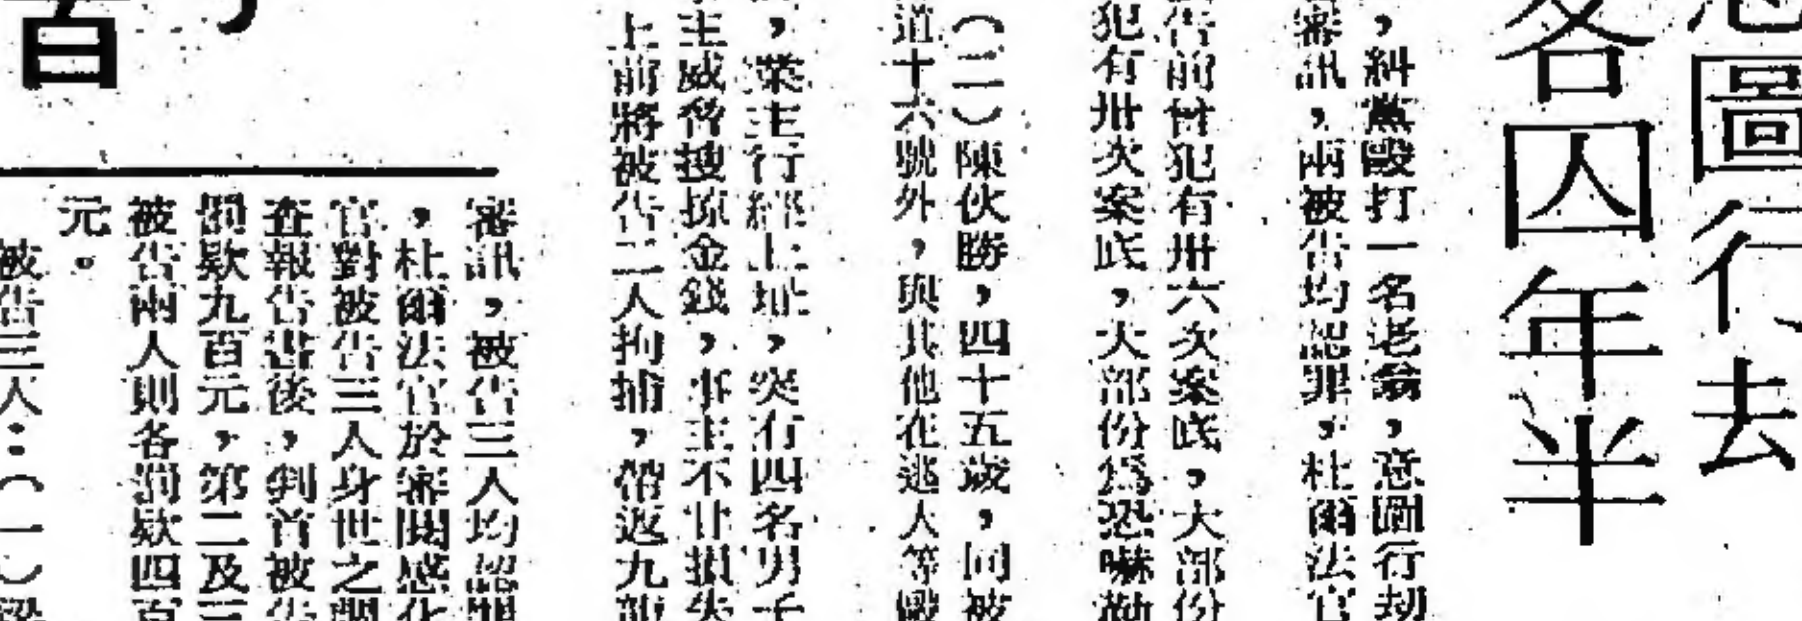 圖行去
各囚年半
，糾黨毆打一名老翁，意圖行劫
審訊，兩被告均認罪，杜爾法官
告前曾犯有卅六次案底，大部份
犯有卅次案底，大部份為恐嚇勒
（二）陳伙勝，四十五歲，同被
道十六號外，與其他在逃人等毆
，業主行經上址，突有四名男子
主威脅搜掠金錢，事主不甘損失
上前將被告二人拘捕，帶返九龍
審訊，被告三人均認罪
，杜爾法官於審閱感化
官對被告三人身世之調
查報告書後，判首被告
罰欵九百元，第二及三
被告兩人則各罰欵四百
元。
被告三人：（一）梁